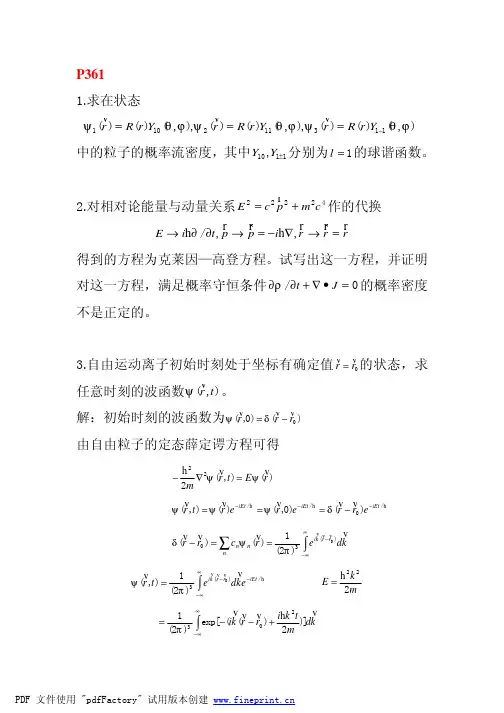 P361
1.求在状态
ψ₁(r⃗) = R(r)Y₁₀(θ,φ), ψ₂(r⃗) = R(r)Y₁₁(θ,φ), ψ₃(r⃗) = R(r)Y₁₋₁(θ,φ)
中的粒子的概率流密度，其中Y₁₀,Y₁±₁分别为l = 1的球谐函数。
2.对相对论能量与动量关系E² = c²p⃗² + m²c⁴作的代换
E → iħ∂/∂t, p⃗ → p⃗ = −iħ∇, r⃗ → r⃗ = r⃗
得到的方程为克莱因—高登方程。试写出这一方程，并证明
对这一方程，满足概率守恒条件∂ρ/∂t + ∇ • J = 0的概率密度
不是正定的。
3.自由运动离子初始时刻处于坐标有确定值r⃗ = r⃗₀的状态，求
任意时刻的波函数ψ(r⃗,t)。
解：初始时刻的波函数为ψ(r⃗,0) = δ(r⃗ − r⃗₀)
由自由粒子的定态薛定谔方程可得
−ħ²/2m ∇²ψ(r⃗,t) = Eψ(r⃗)
ψ(r⃗,t) = ψ(r⃗)e^{−iEt/ħ} = ψ(r⃗,0)e^{−iEt/ħ} = δ(r⃗ − r⃗₀)e^{−iEt/ħ}
δ(r⃗ − r⃗₀) = ∑ₙ cₙψₙ(r⃗) = 1/(2π)³ ∫_{−∞}^{∞} e^{ik⃗(r⃗−r⃗₀)}dk⃗
ψ(r⃗,t) = 1/(2π)³ ∫_{−∞}^{∞} e^{ik⃗(r⃗−r⃗₀)}dk⃗e^{−iEt/ħ} E = ħ²k²/2m
= 1/(2π)³ ∫_{−∞}^{∞} exp[−(ik⃗(r⃗ − r⃗₀) + iħk²t/2m)]dk⃗
PDF 文件使用 "pdfFactory" 试用版本创建 www.fineprint.cn